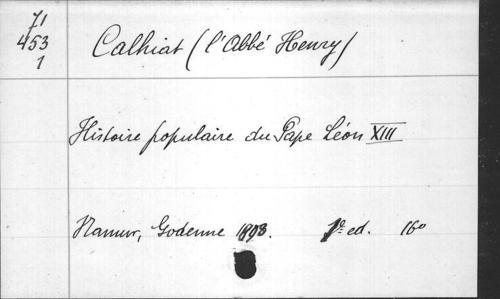 71
453
1
Calhiat (l'Abbé Henry)
Histoire populaire du Pape Léon XIII
Namur, Godenne 1893. ed. 16°